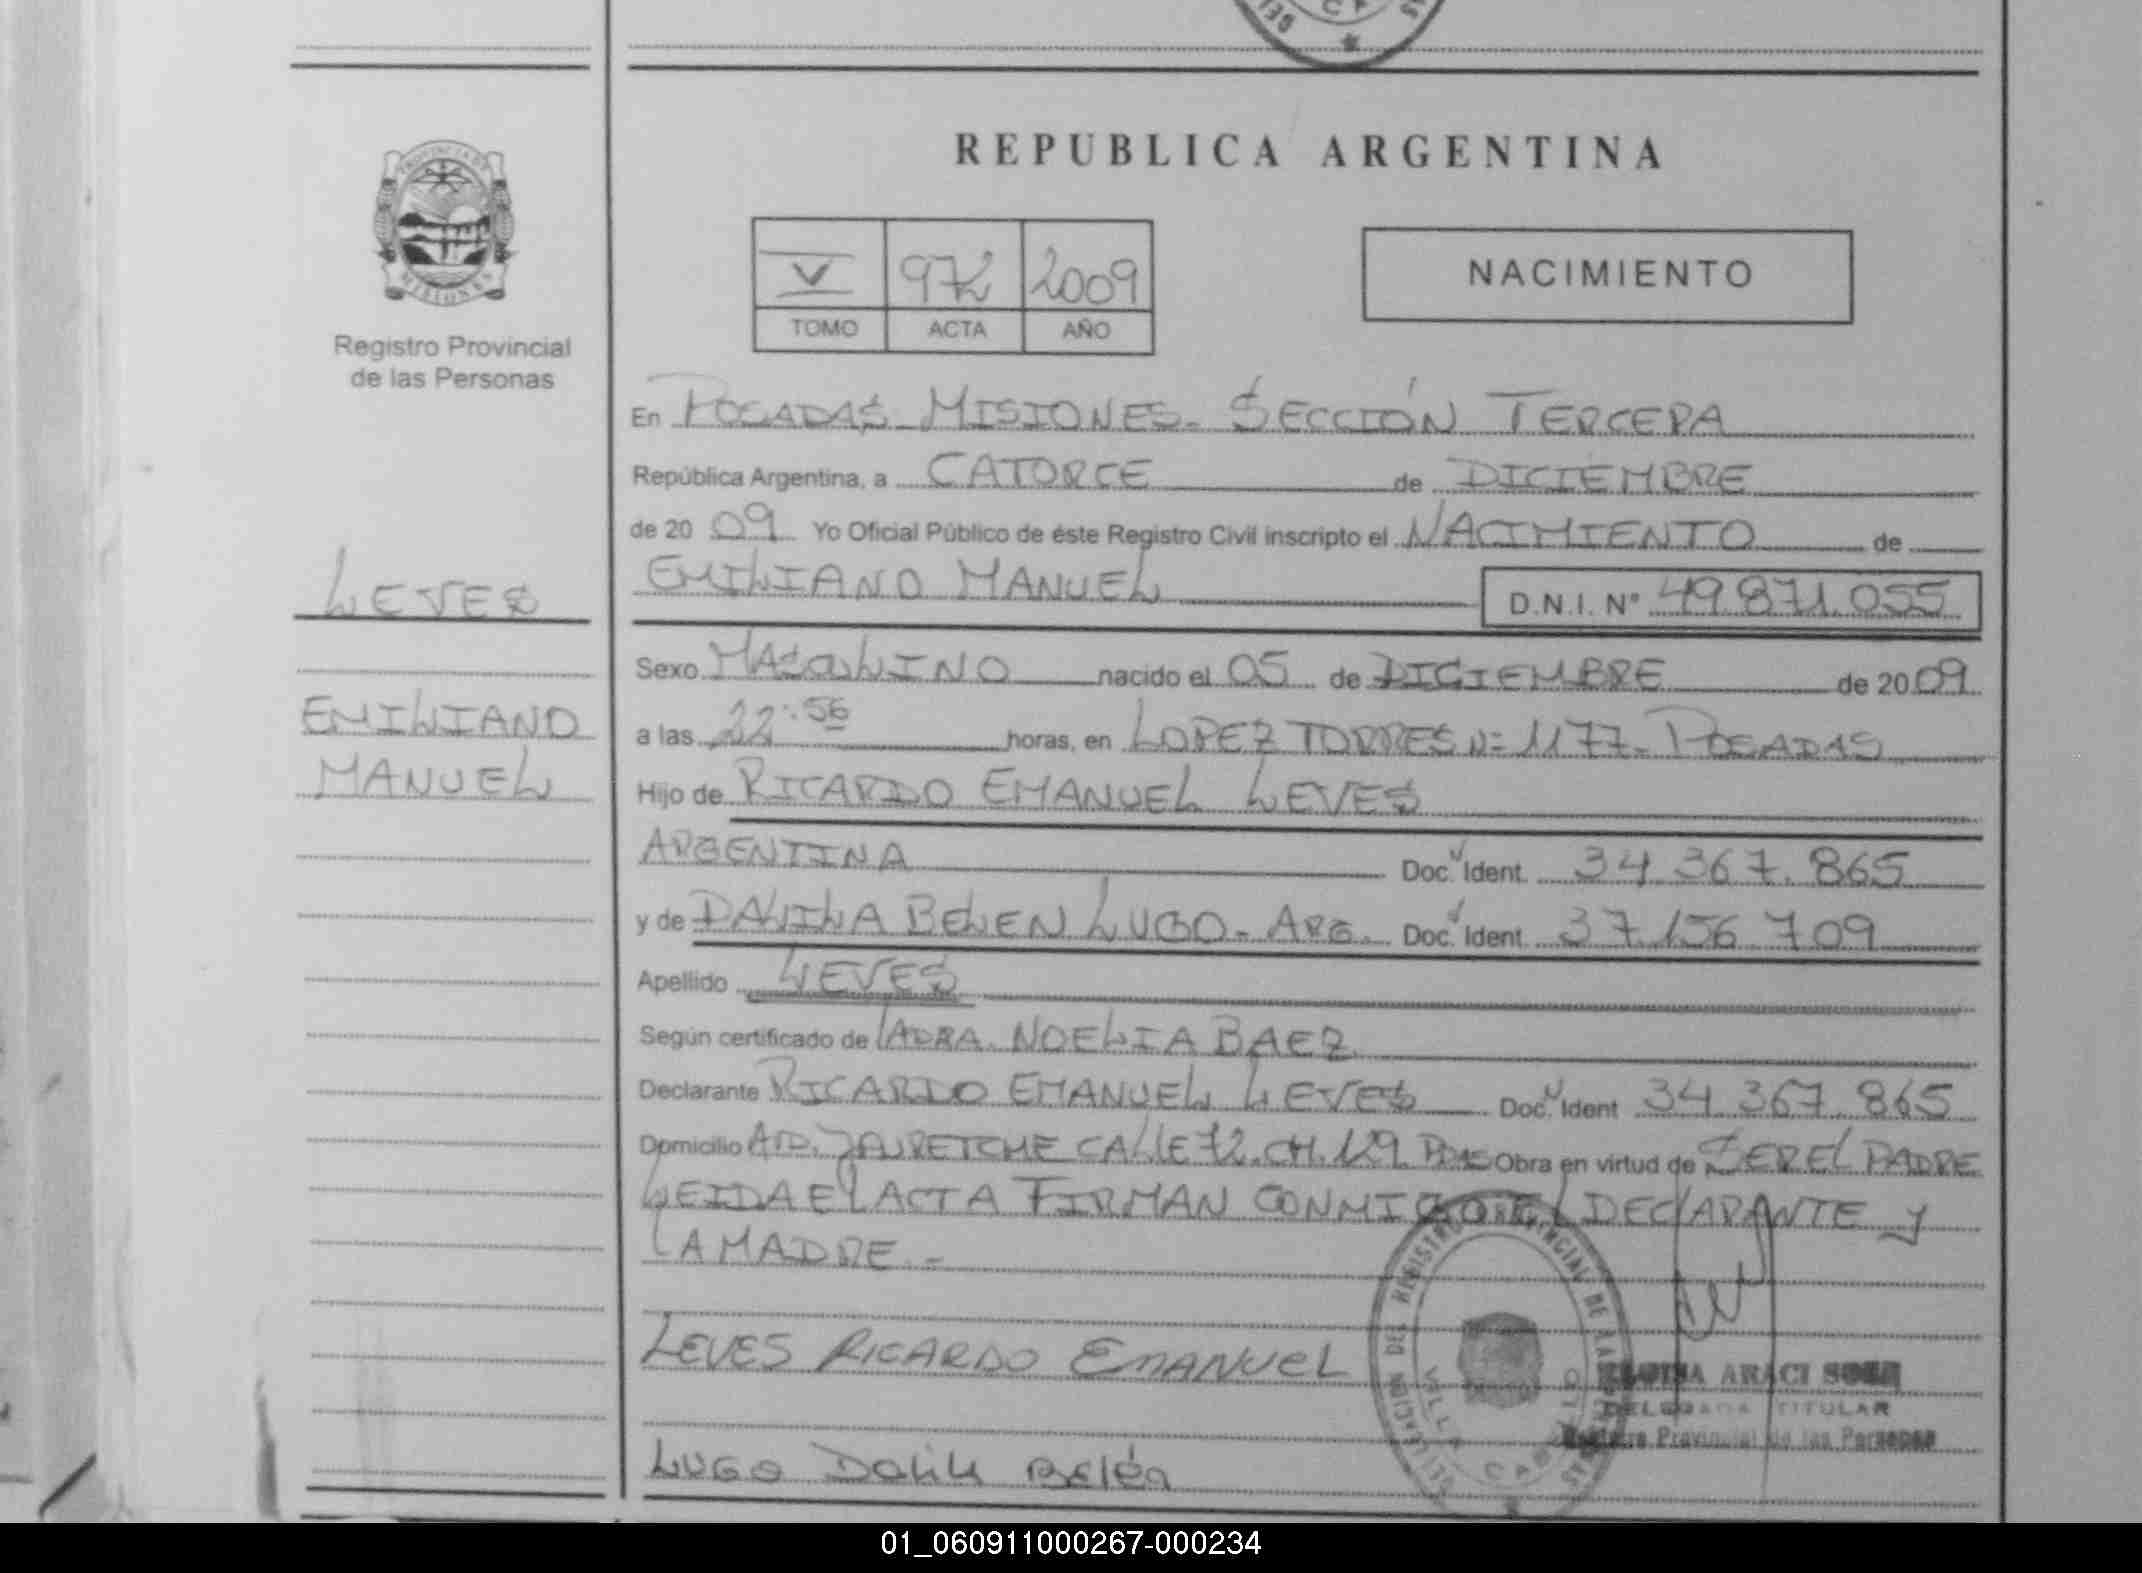 REPUBLICA ARGENTINA
PROVINCIA DE
MISIONES
Registro Provincial
de las Personas
V 972 2009
TOMO ACTA AÑO
NACIMIENTO
En POSADAS - MISIONES - SECCIÓN TERCERA
República Argentina, a CATORCE de DICIEMBRE
de 20 09 Yo Oficial Público de éste Registro Civil inscripto el NACIMIENTO de
EMILIANO MANUEL D.N.I. Nº 49.871.055
LEVES
EMILIANO
MANUEL
Sexo MASCULINO nacido el 05 de DICIEMBRE de 20 09
a las 22:56 horas, en LOPEZ TORRES Nº 1177 - POSADAS
Hijo de RICARDO EMANUEL LEVES
ARGENTINA Doc. Ident. 34.367.865
y de DALILA BELEN LUGO - ARG. Doc. Ident. 37.156.709
Apellido LEVES
Según certificado de LA DRA. NOELIA BAEZ
Declarante RICARDO EMANUEL LEVES Doc. Ident 34.367.865
Domicilio AVD. JAURETCHE CALLE 72. CH. 129 PDAS Obra en virtud de SER EL PADRE
LEIDA EL ACTA FIRMAN CONMIGO EL DECLARANTE Y
LA MADRE.-
LEVES RICARDO EMANUEL
ARACI
DELEGADA TITULAR
Registro Provincial de las Personas
LUGO Dalila Belén
01_060911000267-000234